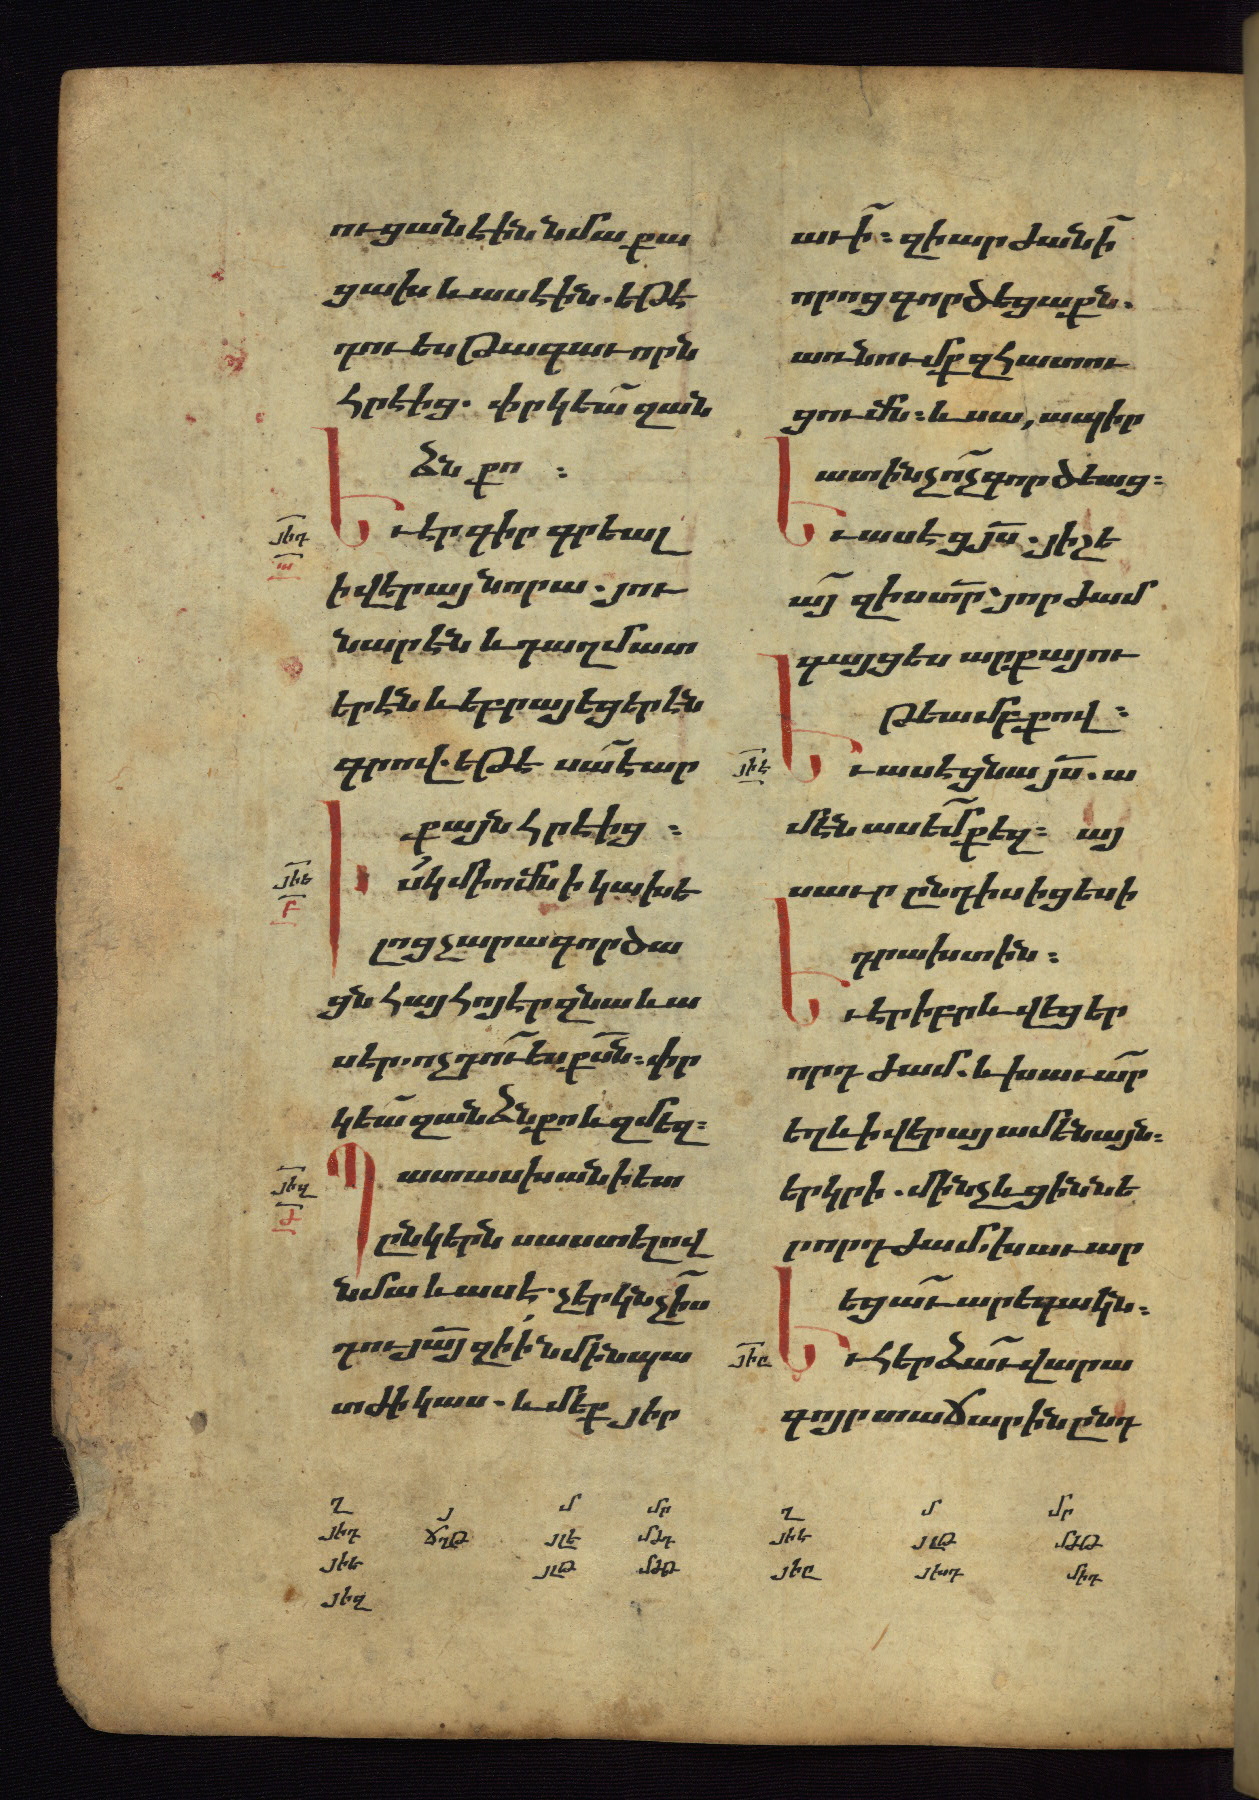 ուցանէին նմա քա
ցախ և ասէին. եթէ
դու ես թագաւորն
հրէից. փրկեա՛ զան
ձն քո :
յիդ
ա
Եւ էր գիր գրեալ
ի վերայ նորա. յու
նարէն և դաղմատ
երէն և եբրայեցերէն
գրով. եթէ սա՛ էար
քայն հրէից :
յիե
բ
Իսկ մի ոմն ի կախե
լոց չարագործա
ցն հայհոյէր զնա և ա
սէր. ոչ դո՞ւ ես քսն : փր
կեա՛ զանձն քո և զմեզ :
յիզ
ժ
Պատասխանի ետ
ընկերն սաստելով
նմա և ասէ. չերկնչի՞ս
դու յայ զի ի նմին պա
տժի կաս. և մեք յիր
աւի՛ : զի արժանի՛
որոց գործեցաքն.
առնումք զհատու
ցումն : և սա, ապիր
ատ ինչ ո՛չ գործեաց :
Եւ ասէ ցյս. յիշե
ա՛յ զիս տր՝ յորժամ
գայցես արքայու
թեամբ քով :
յիէ
Եւ ասէ ցնա յս. ա
մէն ասեմ քեզ : այ
սաւր ընդ իս իցես ի
դրախտին :
Եւ էր իբրև վեցեր
որդ ժամ. և խաւար
եղև ի վերայ ամենայն :
երկրի. մինչև ցիննե
րորդ ժամ. խաւար
եցա՛ւ արեգակն :
յիը
Եւ հերձա՛ւ վարա
գոյր տաճարին ընդ
ղ յ մ մր
յիդ ճղթ յլե մժդ
յիե յլթ մժթ
յիզ
ղ մ մր
յիէ յլթ մժթ
յիը յխդ միդ